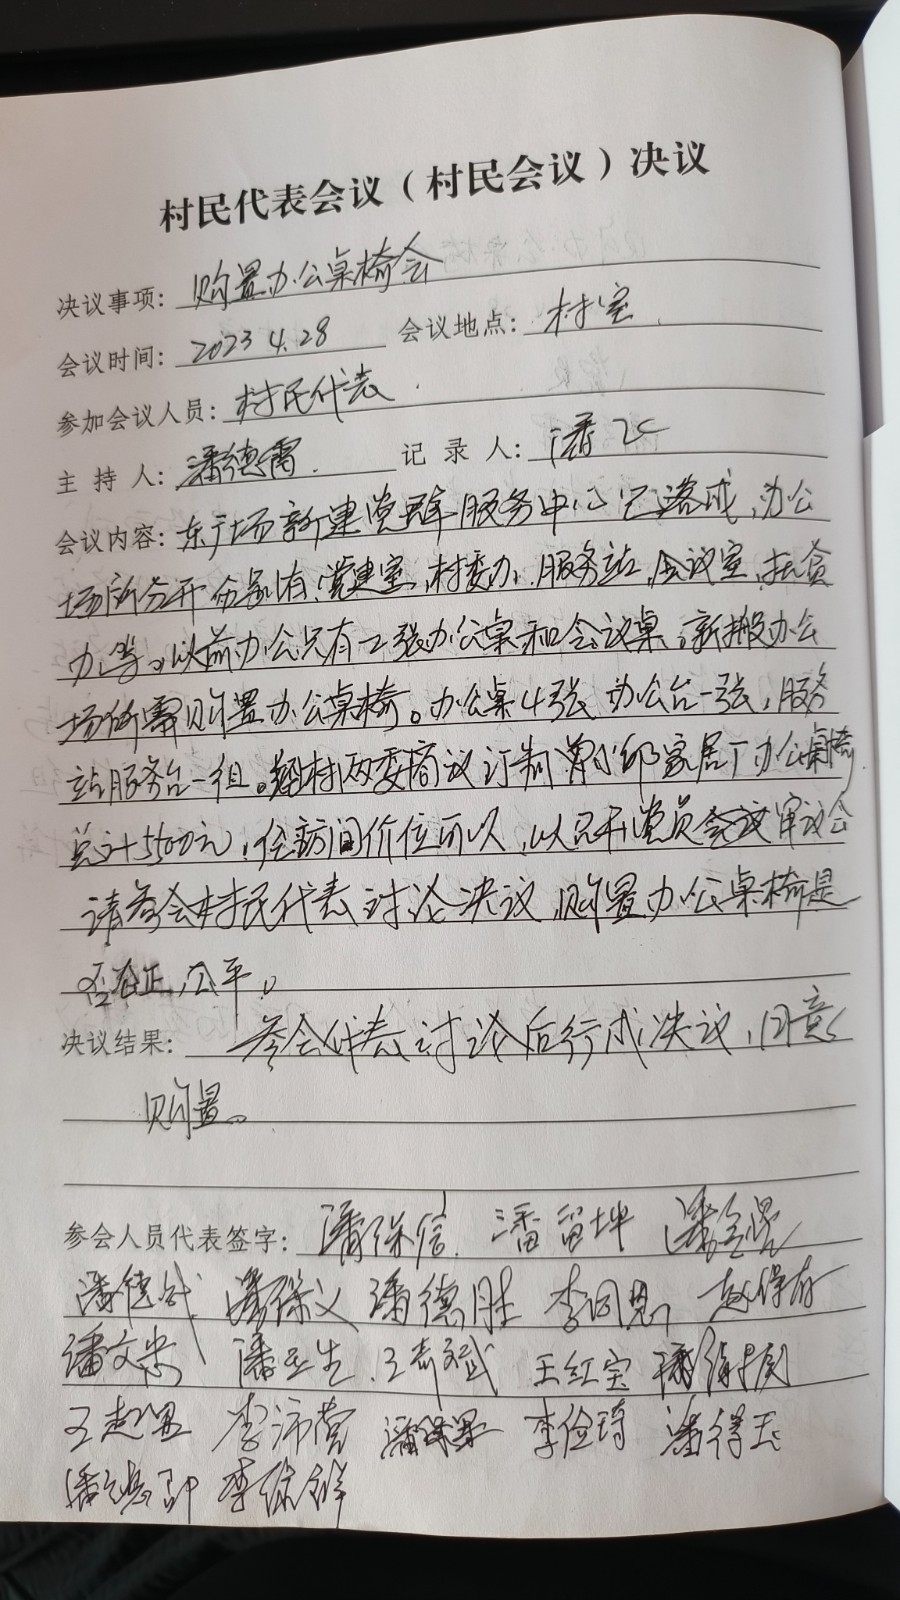 村民代表会议（村民会议）决议
决议事项：购置办公桌椅会
会议时间：2023 4.28 会议地点：村室
参加会议人员：村民代表
主持人：潘德 记录人：潘
会议内容：东广场新建党群服务中心已落成，办公
场所分开 有：党建室，村委办，服务站，会议室，扶贫
办等。以前办公只有二张办公桌和会议桌，新搬办公
场所需购置办公桌椅。办公桌4张 办公台一张，服务
站服务台一组。村两委商议订制 家居厂办公桌椅
总计5500元，经访问价位可以，以召开党员会议审议会
请参会村民代表讨论决议，购置办公桌椅是
否公正，公平。
决议结果：参会代表讨论后行成决议，同意
购置。
参会人员代表签字：潘保信 潘留坤 潘
潘德 潘保义 潘德胜 李同 赵保存
潘文忠 潘 生 王 斌 王红宝
王超 李沛 李俭琦 潘得玉
潘 李保